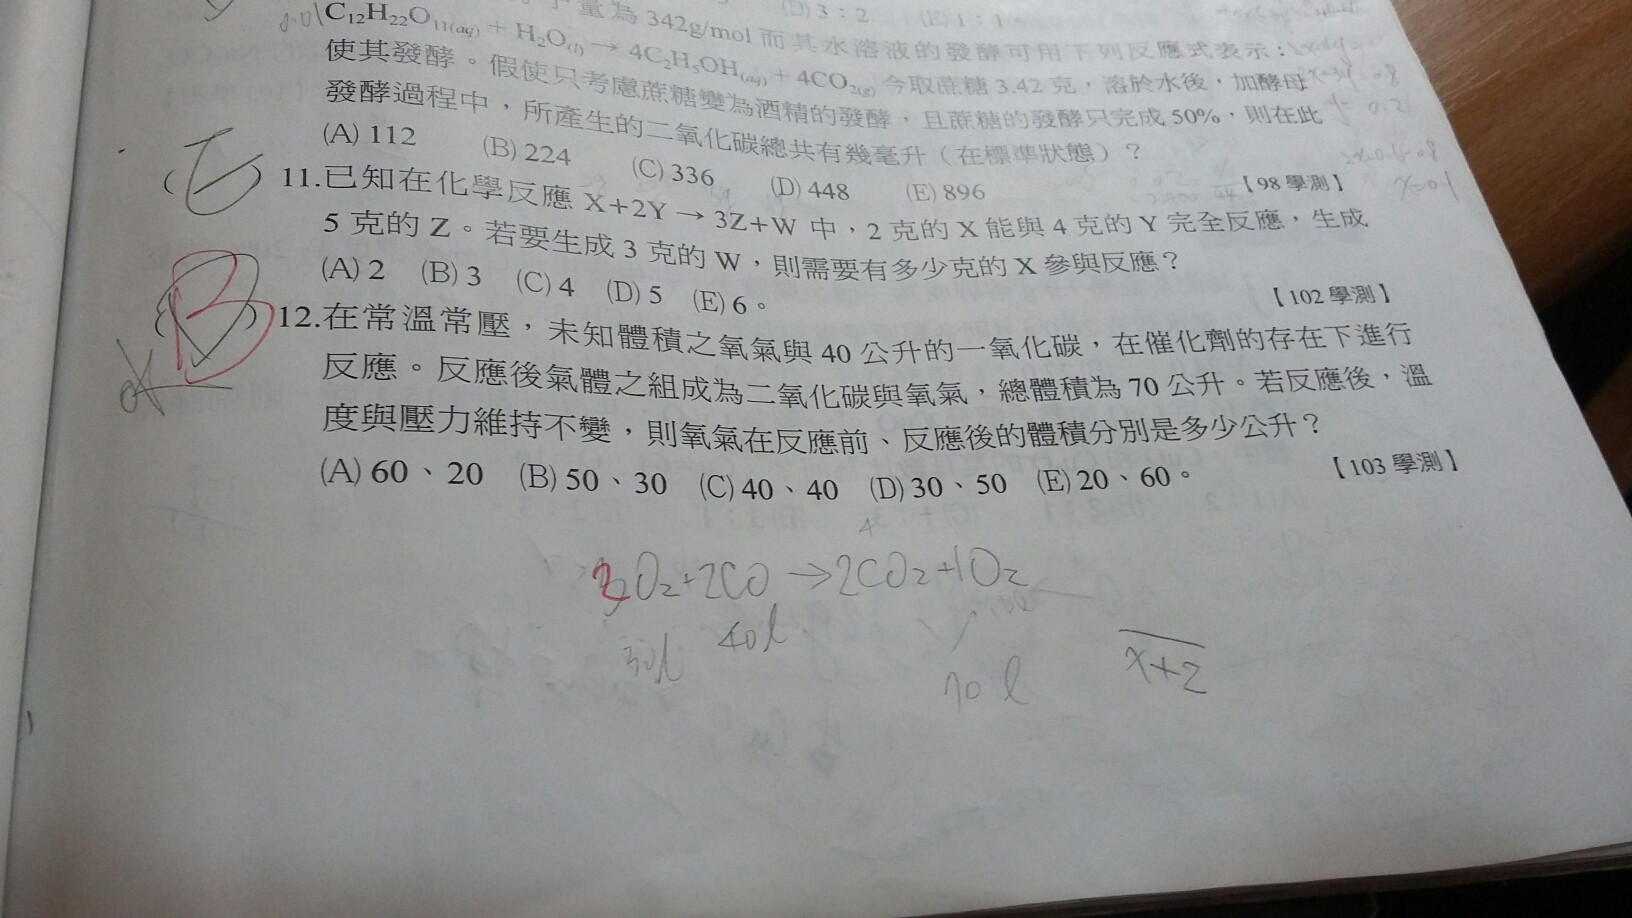 量為342g/mol而其水溶液的發酵可用下列反應式表示：
C₁₂H₂₂O₁₁₍aq₎ + H₂O₍l₎ → 4C₂H₅OH₍aq₎ + 4CO₂₍g₎今取蔗糖3.42克，溶於水後，加酵母
使其發酵。假使只考慮蔗糖變為酒精的發酵，且蔗糖的發酵只完成50%，則在此
發酵過程中，所產生的二氧化碳總共有幾毫升（在標準狀態）？
(A) 112 (B) 224 (C) 336 (D) 448 (E) 896
【98學測】
11.已知在化學反應 X+2Y→3Z+W 中，2克的X能與4克的Y完全反應，生成
5克的Z。若要生成3克的W，則需要有多少克的X參與反應？
(A) 2 (B) 3 (C) 4 (D) 5 (E) 6。
【102學測】
E
B
12.在常溫常壓，未知體積之氧氣與40公升的一氧化碳，在催化劑的存在下進行
反應。反應後氣體之組成為二氧化碳與氧氣，總體積為70公升。若反應後，溫
度與壓力維持不變，則氧氣在反應前、反應後的體積分別是多少公升？
(A) 60、20 (B) 50、30 (C) 40、40 (D) 30、50 (E) 20、60。
【103學測】
O₂+2CO→2CO₂+1O₂
30l 40l
70l
x+2